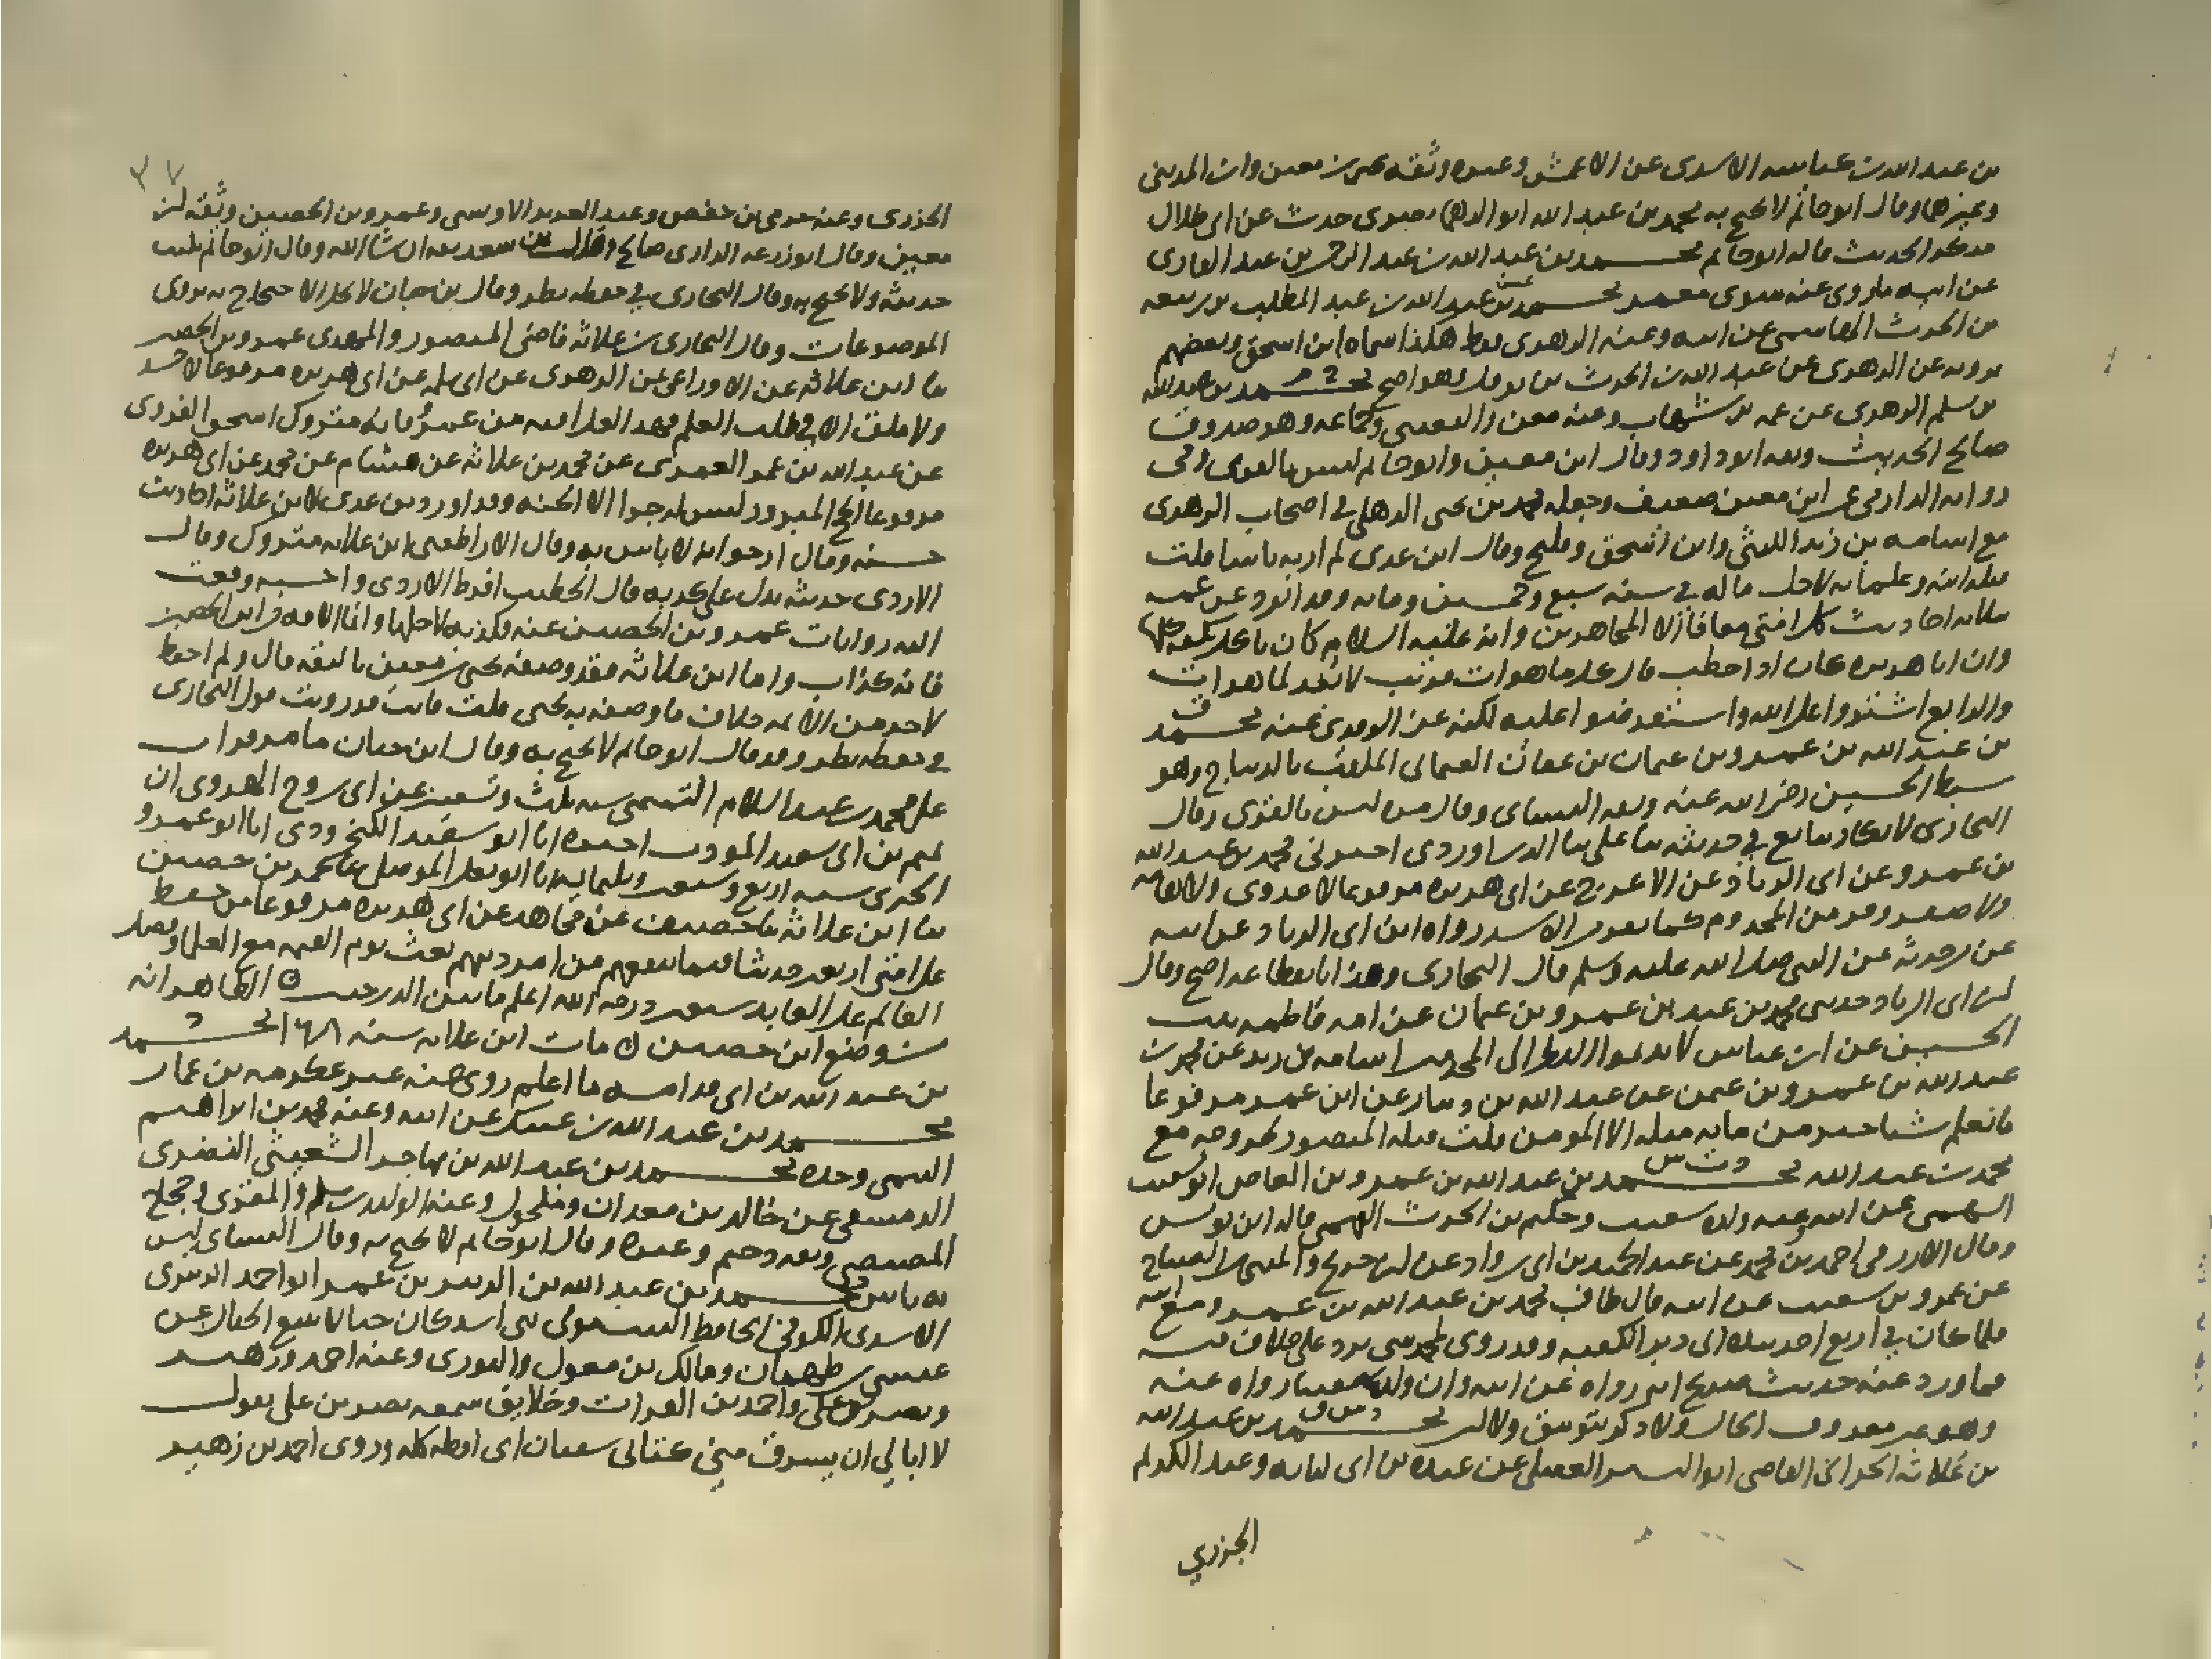 بن عبد الله بن عباسه الاسدى عن الاعمش وعىره وثقه يحيى بن معين وابن المدينى
وغيرهما وقال ابو حاتم لا يحتج به محمد بن عبد الله ابو الدهماء بصرى حدث عن ابى ظلال
منكر الحديث قاله ابو حاتم محمد بن عبد الله بن عبد الرحمن بن عبد القارى
عن ابيه ما روى عنه سوى معمر محمد بن عبد الله بن عبد المطلب بن ربيعه
بن الحرث الهاشمى عن ابيه وعنه الزهرى فقط هكذا سماه ابن اسحق وبعضهم
يرويه عن الزهرى عن عبد الله بن الحرث بن نوفل وهو اصح محمد بن عبد الله
بن مسلم الزهرى عن عمه بن شهاب وعنه معن والقعنبى وجماعه وهو صدوق
صالح الحديث وثقه ابو داود وقال ابن معين وابو حاتم ليس بالقوى وفى
روايه الدارمى عن ابن معين ضعيف وجعله محمد بن يحيى الذهلى فى اصحاب الزهرى
مع اسامه بن زيد الليثى وابن اسحق وفليح وقال ابن عدى لم ار به باسا قلت
قتله ابنه وغلمانه لاجل ماله فى سنه سبع وخمسين ومايه وقد انفرد عن عمه
بثلاثه احاديث كل امتى معافا الا المجاهرين وانه عليه السلام كان ياكل بكفه كلها
وان ابا هريره كان اذا خطب قال كل ما هو ات قريب لا بعد لما هو ات
والرابع اشتروا على الله واستقرضوا عليه لكنه عن الواقدى عنه محمد
بن عبد الله بن عمرو بن عثمان بن عفان العثمانى الملقب بالديباج وهو
سبط الحسين رضى الله عنه وثقه النساى وقال مره ليس بالقوى وقال
البخارى لا يكاد يتابع فى حديثه ثنا على ثنا الدراوردى اخبرنى محمد بن عبد الله
بن عمرو عن ابى الزناد عن الاعرج عن ابى هريره مرفوعا لا عدوى ولا هامه
ولا صفر وفر من المجذوم كما يفر من الاسد رواه ابن ابى الزناد عن ابيه
عن حدثه عن النبى صلى الله عليه وسلم قال البخارى وهذا بانقطاعه اصح وقال
ابن ابى الزناد حدثنى محمد بن عبد الله بن عمرو بن عثمان عن امه فاطمه بنت
الحسين عن ابن عباس لا تديموا النظر الى المجذومين اسامه بن زيد عن محمد بن
عبد الله بن عمرو بن عثمن عن عبد الله بن دينار عن ابن عمر مرفوعا
ما نعلم شيا خير من مايه مثله الا المومن قلت قتله المنصور لخروجه مع
محمد بن عبد الله محمد بن عبد الله بن عمرو بن العاص ابو شعيب
السهمى عن ابيه وعنه ولده شعيب وحكيم بن الحرث الفهمى قاله ابن يونس
وقال الازرقى احمد بن محمد عن عبد المجيد بن ابى رواد عن ابن جريج والمثنى بن الصباح
عن عمرو بن شعيب عن ابيه قال طاف محمد بن عبد الله بن عمرو مع ابيه
فلما كان فى اربع احد بيده الى دبر الكعبه وقد روى لمحمد شى يرد على خلاف فيه
فما ورد عنه حديث صريح انه رواه عن ابيه وان ولده شعيبا رواه عنه
وهو غير معروف الحال ولا ذكر بتوثيق ولا لين محمد بن عبد الله
بن علاثه الحرانى القاضى ابو اليسر العقيلى عن عبده بن ابى لبابه وعبد الكريم
الجزري
٣٧
الجزرى وعنه حرمى بن حفص وعبد العزيز الاويسى وعمرو بن الحصين وثقه ابن
معين وقال ابو زرعه الرازى صالح وقال ابن سعد ثقه ان شا الله وقال ابو حاتم يكتب
حديثه ولا يحتج به وقال البخارى فى حفظه نظر وقال بن حبان لا يحل الاحتجاج به يروى
الموضوعات وقال البخارى بن علاثه قاضى المنصور والمهدى عمرو بن الحصين
ثنا ابن علاثه عن الاوزاعى عن الزهرى عن ابى سلمه عن ابى هريره مرفوعا لا حسد
ولا ملق الا فى طلب العلم فهذا لعل افته من عمرو فانه متروك اسحق الفروى
عن عبد الله بن عمر العمرى عن محمد بن علاثه عن هشام عن محمد عن ابى هريره
مرفوعا الحج المبرور ليس له جزا الا الجنه وقد اورد بن عدى لابن علاثه احاديث
حسنه وقال ارجو انه لا باس به وقال الدارقطنى ابن علاثه متروك وقال
الازدى حديثه يدل على كذبه قال الخطيب افرط الازدى واحسبه وقعت
اليه روايات عمرو بن الحصين عنه فكذبه لاجلها وانما الافه من ابن الحصين
فانه كذاب واما ابن علاثه فقد وصفه يحيى بن معين بالثقه قال ولم احفظ
لاحد من الايمه خلاف ما وصفه به يحيى قلت قابت قد رويت قول البخارى
فى حفظه نظر وقد قال ابو حاتم لا يحتج به وقال ابن حبان ما مر قرات
على محمد بن عبد السلام التميمى سنه ثلاث وتسعين عن ابى روح الهروى ان
تميم بن ابى سعيد المودب اخبره انا ابو سعيد الكنجرودى انا ابو عمرو
الحيرى سنه اربع وسبعين وثلثمايه انا ابو يعلى الموصلى ثنا عمرو بن حصين
ثنا ابن علاثه ثنا خصيف عن مجاهد عن ابى هريره مرفوعا من حفظ
على امتى اربعين حديثا فيما ينفعهم من امر دينهم بعث يوم القيمه مع العلما وفضل
العالم على العابد سبعين درجه الله اعلم ما بين الدرجتين ۞ الظاهر انه
من وضع ابن حصين ۞ مات ابن علاثه سنه ١٦٨ محمد
بن عبد الله بن ابى قدامه ما اعلم روى عنه غير عكرمه بن عمار
محمد بن عبد الله بن عسكر عن ابيه وعنه محمد بن ابراهيم
التيمى وحده محمد بن عبد الله بن مهاجر الشعيثى النضرى
الدمشقى عن خالد بن معدان ومكحول وعنه الوليد بن مسلم والمقرى وحجاج
المصيصى وثقه دحيم وغيره وقال ابو حاتم لا يحتج به وقال النساى ليس
به باس محمد بن عبد الله بن الزبير بن عمر ابو احمد الزبيرى
الاسدى الكوفى الحافظ مولى بنى اسد كان حبالا يبيع الحبال عن
عيسى بن طهمان ومالك بن مغول والثورى وعنه احمد وزهير
ونصر بن على واحمد بن الفرات وخلايق سمعه نصر بن على يقول
لا ابالي ان يسرق مني كتاب سفيان انى احفظه كله وروى احمد بن زهير